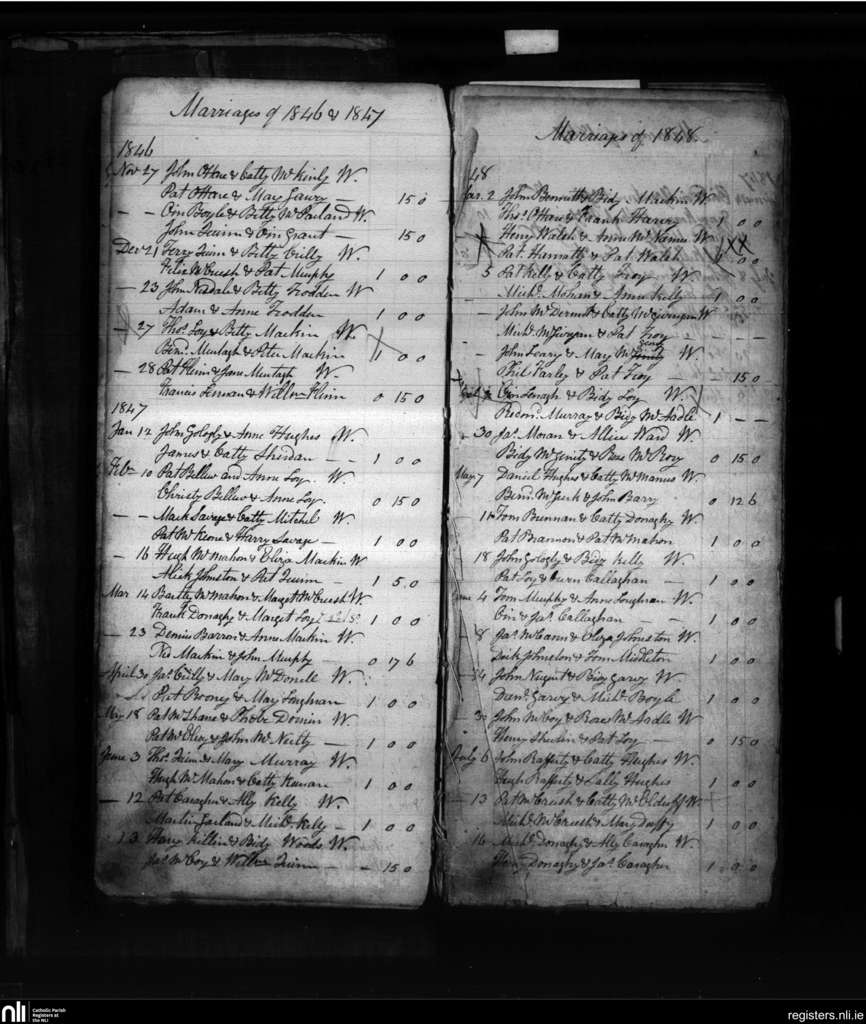 Marriages of 1846 & 1847
1846
Nov 27 John OHare & Catty McKinly W.
Pat OHare & Mary — 15 0
— — Oin Boyle & Betty McParland W.
John Quinn & Oin Grant — 15 0
Decr 21 Terry Quinn & Betty W.
Felix McCrush & Pat Murphy 1 0 0
— 23 John & Betty Frodden W
Adam & Anne Frodden 1 0 0
— 27 Thos Loy & Betty Mackin W.
Benj. Murtagh & Peter Mackin 1 0 0
— 28 Pat & Jane Murtagh W.
Francis & 0 15 0
1847
Jan 12 John Gologly & Anne Hughes W.
James & Catty Sheridan — — 1 0 0
Feb 10 Pat Bellew and Anne Loy W.
Christy Bellew & Anne Loy 0 15 0
— — Mark Savage & Catty Mitchel W.
Pat McKeone & Harry Savage — 1 0 0
— 16 Hugh McMahon & Eliza Mackin W
Alick Johnston & Pat Quinn — 1 5 0
Mar 14 Bartly McMahon & Marget McCrush W.
Frank Donaghy & Marget Loy 1 0 0
— 23 Denis Barron & Anne Mackin W
Mackin & John Murphy — 0 17 6
April 30 Jas & Mary McDonell W.
Pat Rooney & Mary Loughran 1 0 0
May 18 Pat McShane & Phebe W.
Pat McElroy & John McNulty — 1 0 0
June 3 Thos Quinn & Mary Murray W.
Hugh McMahon & Catty Keenan 1 0 0
— 12 Pat Caragher & Ally Kelly W.
Martin Garland & Michl Kelly — 1 0 0
13 Harry Killin & Bidy Woods W.
Jas McCoy & Quinn — — 15 0
Marriages of 1848.
48
2 John & Bidy Mackin W
Thos OHare & Frank Harvy 1 0 0
Henry Walsh & Anne McNamee W XX
Pat Hanratty & Pat Walsh 0 0
5 Pat Kelly & Catty Troy W
Michl Mohan & Anne Kelly 1 0 0
— John McDermot & Catty W
Michl & Pat Troy — — —
— John Leary & Mary W
Phil Varley & Pat Troy — 15 0
Oin & Bidy Loy W.
Murray & Bidy McArdle 1 — —
— 30 Jas Moran & Allice Ward W
Bidy McGinity & Rose McRory 0 15 0
May 7 Daniel Hughes & Catty McManus W
Benj. & John Barry 0 12 6
— 11 Tom Brennan & Catty Donaghy W.
Pat Brannon & Pat McMahon 1 0 0
18 John Gologly & Bidy Kelly W.
Pat Loy & Owen Callaghan — 1 0 0
4 Tom Murphy & Anne Loughran W
Oin & Jas Callaghan — — 1 0 0
— 8 Jas McCann & Eliza Johnston W
Dick Johnston & Tom Middleton 1 0 0
24 John Nugent & Bidy Garvy W
Danl Garvy & Michl Boyle 1 0 0
— 30 John McCoy & Rose McArdle W
Henry & Pat Loy — 0 15 0
July 6 John Rafferty & Catty Hughes W.
Hugh Rafferty & Sally Hughes 1 0 0
— 13 Pat McCrush & Catty W
Michl McCrush & Mary Duffy 1 0 0
16 Michl Donaghy & Ally Caragher W
Donaghy & Jas Caragher 1 0 0
nli
Catholic Parish
Registers at
the NLI
registers.nli.ie